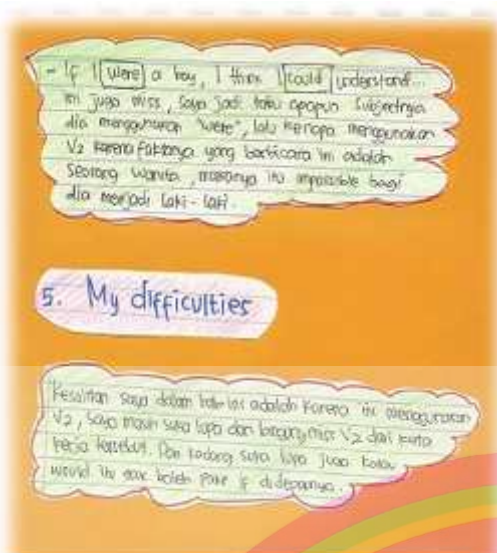 - If I were a boy, I think I could understand...
Ini juga miss, saya jadi tahu apapun subjectnya
dia menggunakan "were", lalu kenapa menggunakan
V2 karena faktanya yang berbicara ini adalah
seorang wanita, makanya itu impossible bagi
dia menjadi laki-laki.
5. My difficulties
Kesulitan saya dalam hal ini adalah karena ini menggunakan
V2, saya masih suka lupa dan bingung miss V2 dari kata
kerja tersebut. Dan kadang suka lupa juga kalau
would itu gak boleh pake if didepannya.